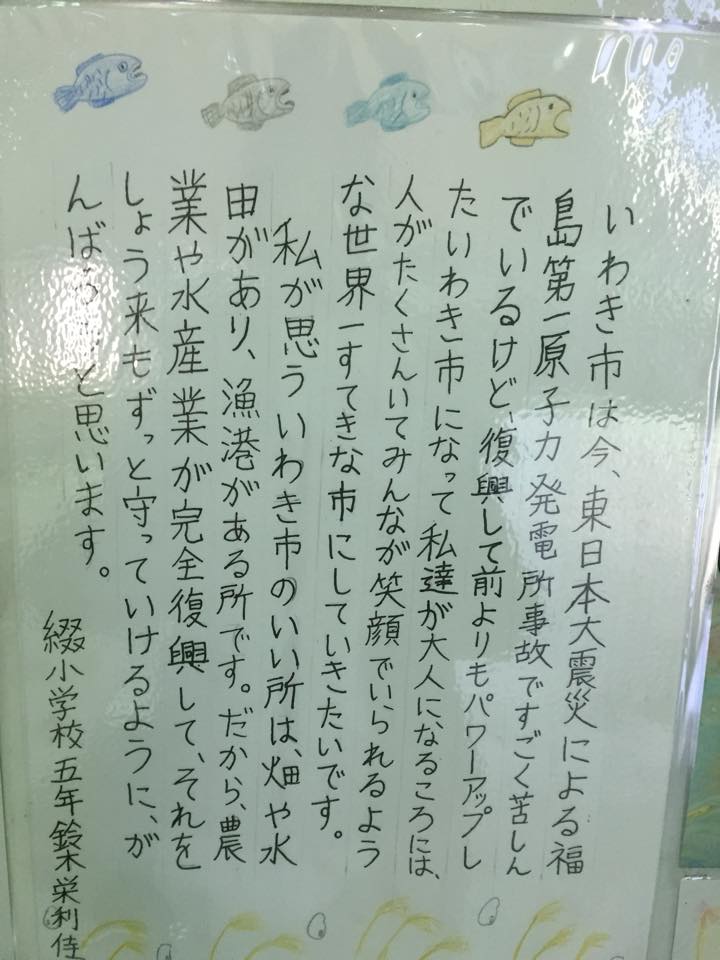 いわき市は今、東日本大震災による福
島第一原子力発電所事故ですごく苦しん
でいるけど、復興して前よりもパワーアップし
たいわき市になって私達が大人になるころには、
人がたくさんいてみんなが笑顔でいられるよう
な世界一すてきな市にしていきたいです。
私が思ういわき市のいい所は、畑や水
田があり、漁港がある所です。だから、農
業や水産業が完全復興して、それを
しょう来もずっと守っていけるように、が
んばろうと思います。
綴小学校五年鈴木栄利佳